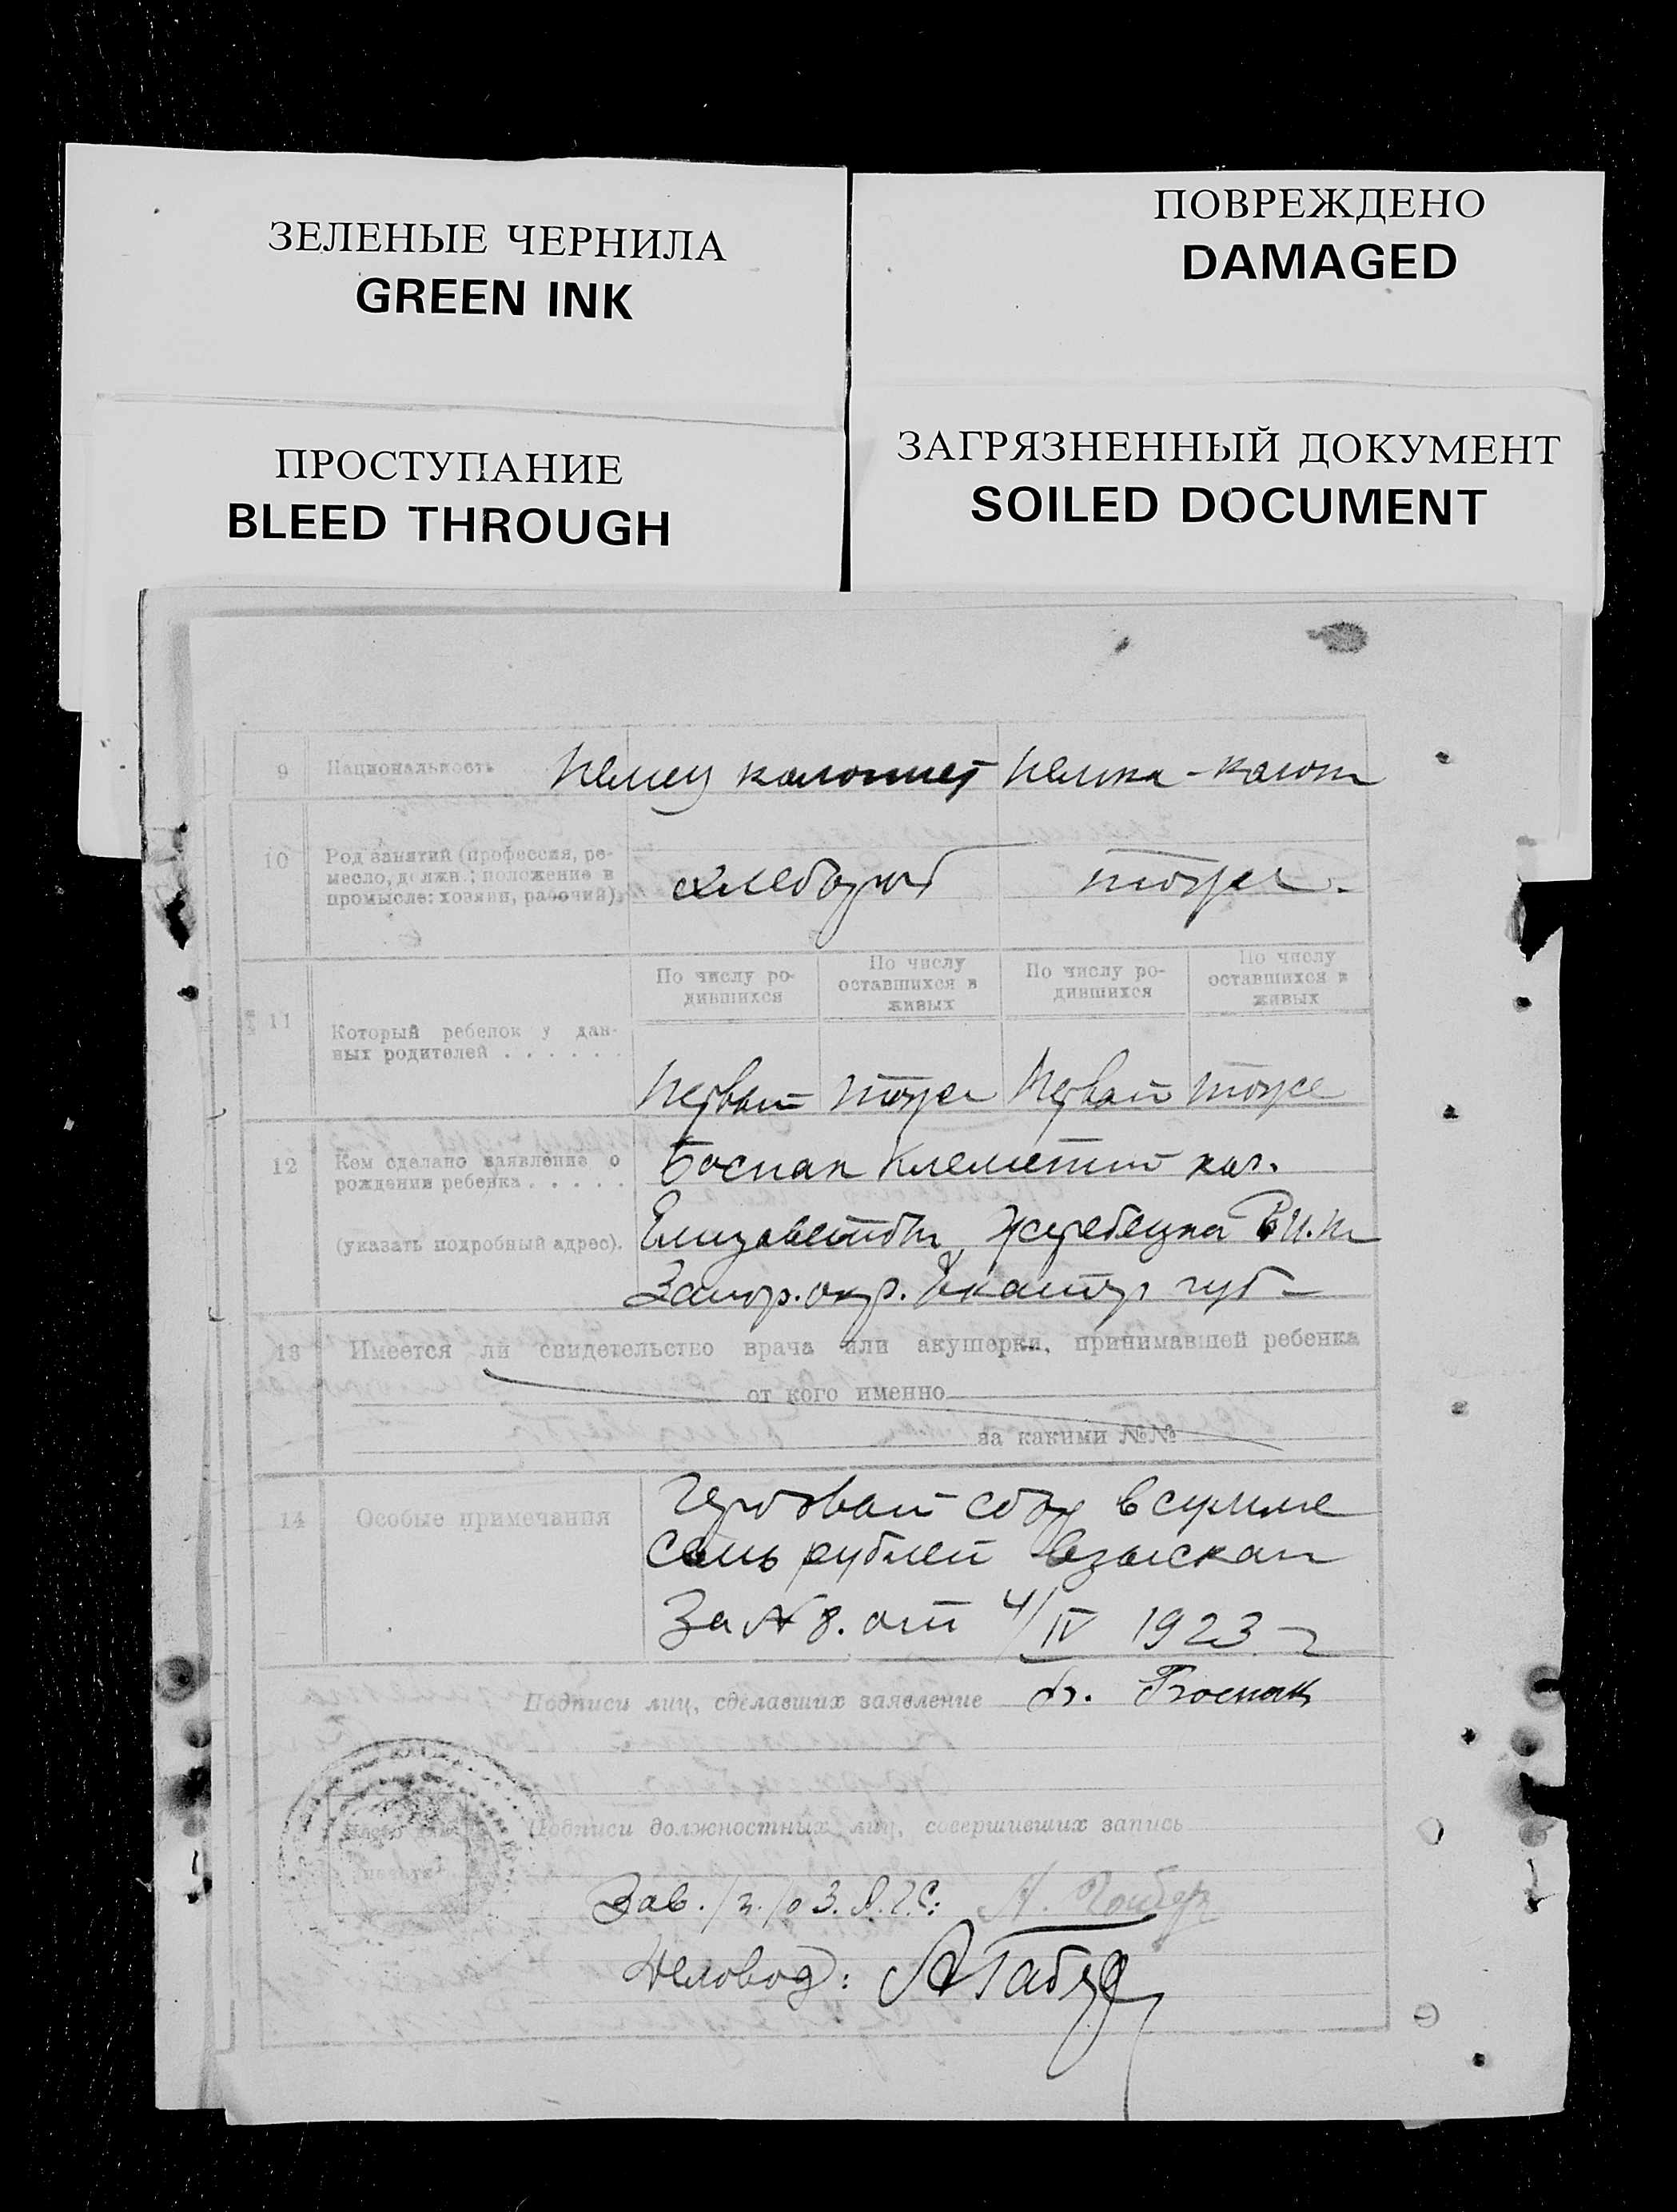 ЗЕЛЕНЫЕ ЧЕРНИЛА
GREEN INK
ПОВРЕЖДЕНО
DAMAGED
ПРОСТУПАНИЕ
BLEED THROUGH
ЗАГРЯЗНЕННЫЙ ДОКУМЕНТ
SOILED DOCUMENT
9 Национальность Немец колонист Немка-колон
10 Род занятий (профессия, ре-
месло, должн.; положение в
промысле: хозяин, рабочий).
хлебороб тоже.
По числу ро-
дившихся
По числу
оставшихся в
живых
По числу ро-
дившихся
По числу
оставшихся в
живых
11 Который ребенок у дан-
ных родителей . . . . . .
Первый тоже Первый тоже
12 Кем сделано заявление о
рождении ребенка . . . . .
(указать подробный адрес).
Боспак Клементий кол.
Елизаветовки Жеребецка
Запор. окр. Екатер губ
13 Имеется ли свидетельство врача или акушерки, принимавшей ребенка
от кого именно
за какими №№
14 Особые примечания
Гербовый сбор в сумме
семь рублей взыскан
За № 8. от 4/IV 1923 г
Подписи лиц, сделавших заявление Боспак
Подписи должностных лиц, совершивших запись
Зав. З.А.Г.С:
Деловод: